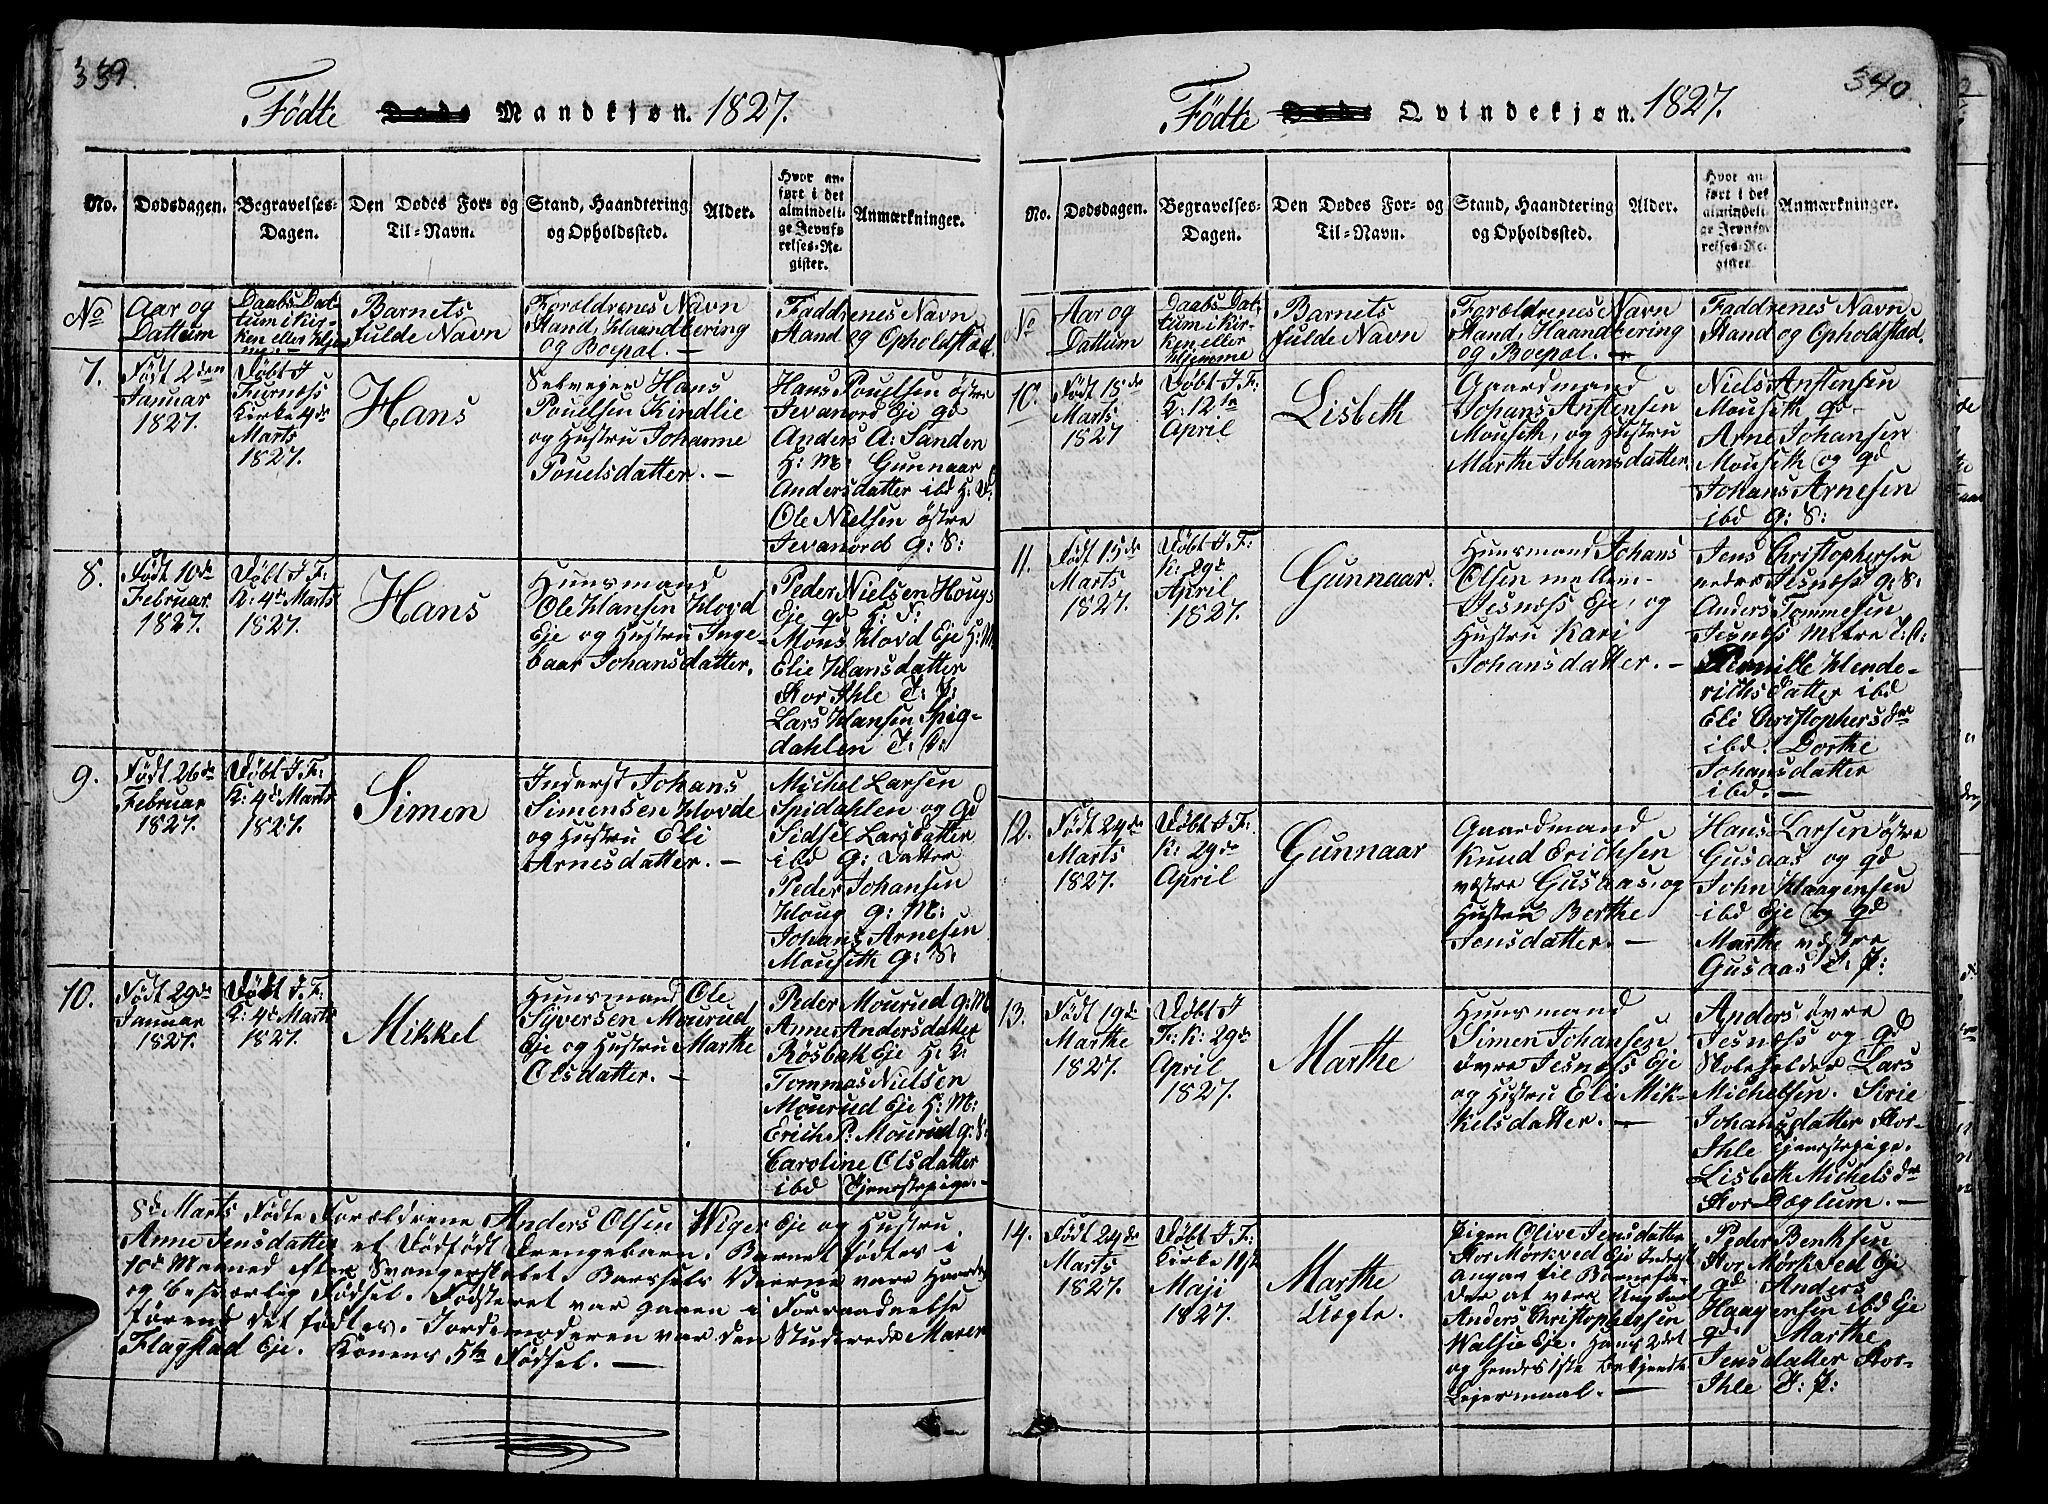 339.
Födte Døde Mandkjøn. 1827.
No.
Dødsdagen.
Begravelses-
Dagen.
Den Dødes For- og
Til-Navn.
Stand, Haandtering
og Opholdssted.
Alder.
Hvor an-
ført i det
almindeli-
ge Jevnfø-
relses-Re-
gister.
Anmærkninger.
No
Aar og
Dattum
Daabs Dat-
tum i Kir-
ken eller Hjem-
me.-
Barnets
fulde Navn
Forældrenes Navn
Stand, Haandtering
og Boepæl. -
Faddrenes Navn
Stand og Opholdstæd.
7.
Født 2den
Januar
1827.
Døbt I
Furnæss
Kirke 4de
Marts
1827.
Hans
Selveyer Hans
Pouelsen Kindlie
og Hustru Johanne
Pouelsdatter. -
Hans Pouelsen östre
Jevanord Eje gd
Anders A: Sanden
H: M: Gunnaar
Andersdatter ibd H: K:
Ole Nielsen östre
Jevanord G: S:
8.
Født 10de
Februar
1827.
Døbt I F:
K: 4de Marts
1827.
Hans
Huusmand
Ole Hansen Hovd
Eje og Hustru Inge-
baar Johansdatter.
Peder Nielsen Houg
Eje gd H: S:
Mons Hovd Eje H: M
Elie Hansdatter
Stor Ihle T: P:
Lars Hansen Spig-
dahlen T: D:
9.
Født 26de
Februar
1827.
Døbt I F:
K: 4de Marts
1827.
Simen
Inderst Johans
Simensen Hovde
og Hustru Eli
Arnesdatter. -
Michel Larsen
Spidahlen og Gd
Sidsel Larsdatter
ibd G: Datter
Peder Johansen
Houg G: M:
Johans Arnesen
Mouseth G: S:
10.
Født 29de
Januar
1827.
Døbt I F:
K: 4de Marts
1827.
Mikkel
Huusmand Ole
Syversen Mourud
Eje og Hustru Marthe
Olsdatter. -
Peder Mourud G: M
Anne Andersdatter
Rösbak Eje H: K:
Tommas Nielsen
Mourud Eje H: M:
Erich P: Mourud G: S:
Caroline Olsdatter
ibd Tjenestepige. -
8de Marts Fødte Forældrene Anders Olsen Wiger Eje og Hustru
Anne Jensdatter et Dödfödt Drengebarn. Barnet födtes i
10de Maaned efter Svangerskabet. Barsels Veerne vare Haarde
og besværlig Födsel. Fosteret var gaaen i Forraadnelse
förend det födtes. Jordemoderen var den Studerede Maren
Flagstad Eje. Konens 5te Födsel. -
340
Födte Døde Qvindekjøn. 1827.
No.
Dødsdagen.
Begravelses-
Dagen.
Den Dødes For- og
Til-Navn.
Stand, Haandtering
og Opholdssted.
Alder.
Hvor an-
ført i det
almindeli-
ge Jevnfø-
relses-Re-
gister
Anmærkninger.
No
Aar og
Dattum
Daabs Dat-
tum i Kir-
ken eller
Hjemme
Barnets
fulde Navn
Forældrenes Navn
Stand, Haandtering
og Boepæl. -
Faddrenes Navn,
Stand og Opholdstæd.
10.
Født 18de
Marts
1827
Døbt I F:
K: 12te
April
Lisbeth
Gaardmand
Johans Anstensen
Mouseth, og Hustru
Marthe Johansdatter
Niels Anstensen
Mouseth gd
Arne Johansen
Mouseth og gd
Johans Arnesen
ibd G: S:
11.
Født 15de
Marts
1827.
Døbt I F:
K: 29de
April
1827.
Gunnaar.
Huusmand Johans
Olsen mellem-
Jesness Eje, og
Hustru Kari
Johansdatter. -
Jens Christophersen
nedre Jesness G: S:
Anders Tommesen
Jesness Metre T: D:
Pernille Hende-
richsdatter ibd
Eli Christophersder
ibd. Dorthe
Johansdatter
ibd. -
12.
Født 24de
Marts
1827.
Døbt I F:
K: 29de
April
Gunnaar
Gaardmand
Knud Erichsen
vestre Gusaas, og
Hustru Berthe
Jensdatter. -
Hans Larsen östre
Gusaas og gd
John Haagensen
ibd Eje og gd
Marthe vestre
Gusaas T: P:
13.
Født 19de
Marthe
1827.
Døbt I
F: K: 29de
April
1827.
Marthe
Huusmand
Simen Johansen
övre Jesness Eje
og Hustru Eli Mik-
kelsdatter. -
Anders övre
Jesness og Gd
Skoleholder Lars
Michelsen. Sirie
Johansdatter Stor-
Ihle Tjenestepige.
Lisbeth Michelsder
Stor Dæglum. -
14.
Født 24de
Marts
1827.
Døbt I F:
Kirke 19de
Maji
1827.
Marthe
Uægte.
Pigen Olive Jensdatter
Stor Mörkved Eje Inderst
Angav til Barnefa-
der at være Ungkarl
Anders Christophersen
Walsie Eje. Hans 2det
og hendes 1ste bekjendte
Lejermaal. -
Peder Benthsen
Stor Mörkved Eje
gd Anders
Haagensen ibd Eje
gd. Marthe
Jensdatter Stor-
Ihle T: P: